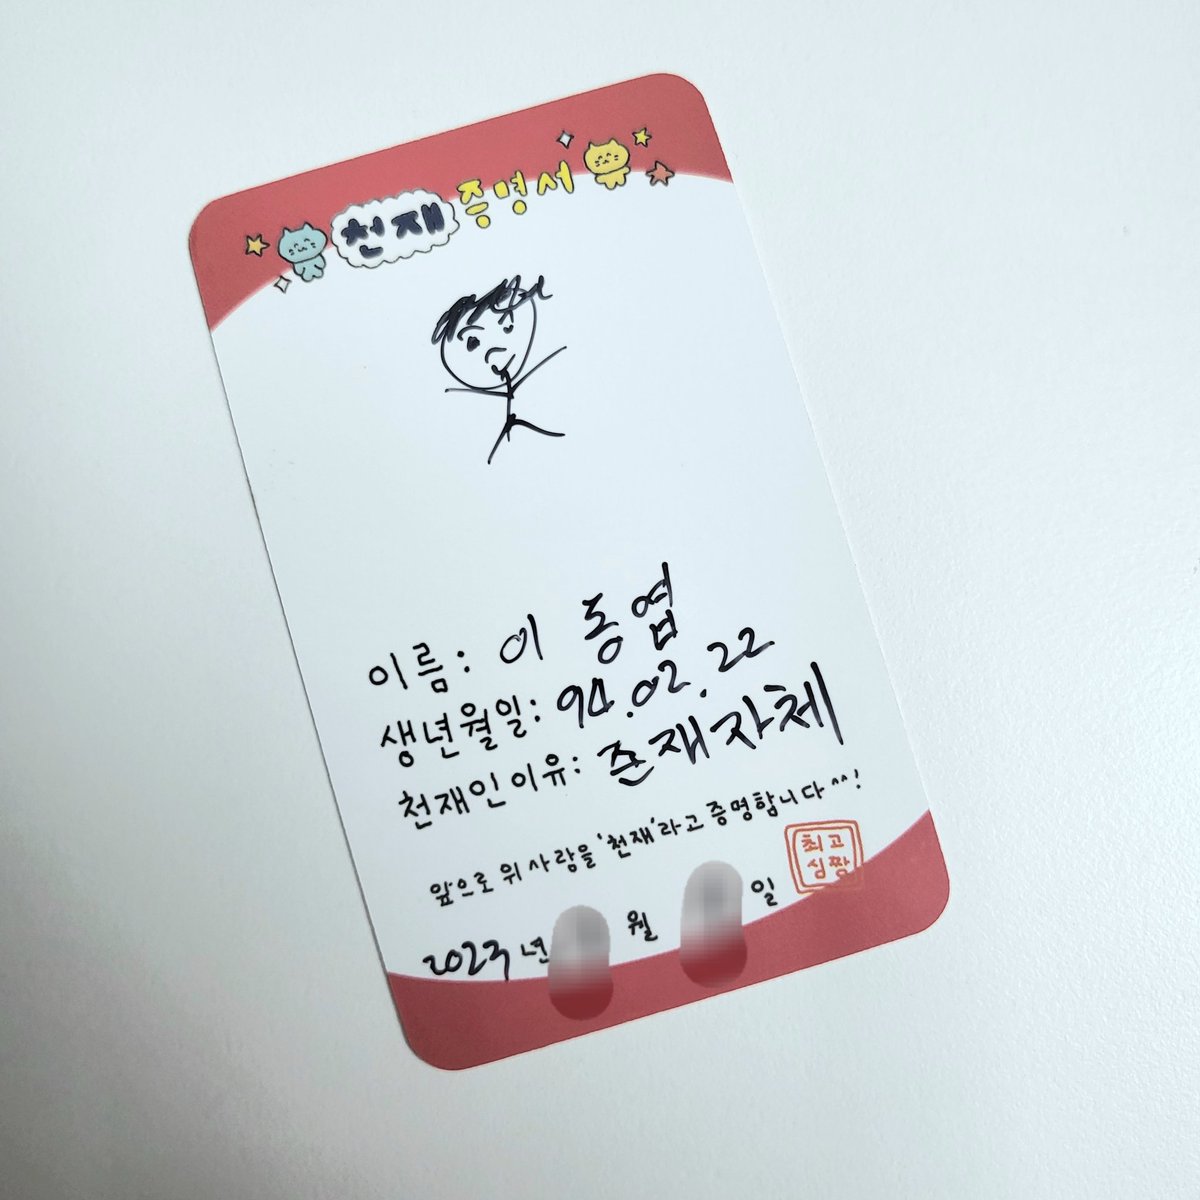 천재 증명서
이름: 이동엽
생년월일: 94.02.22
천재인이유: 존재자체
앞으로 위 사람을 '천재'라고 증명합니다^^!
2023년 월 일
최고
심짱